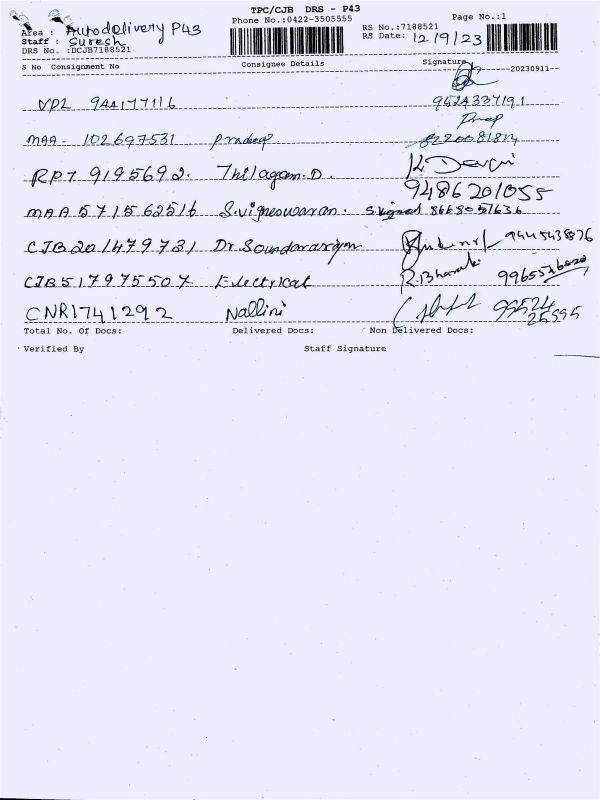 TPC/CJB DRS - P43
Phone No.:0422-3505555
Page No.:1
Area : Autodelivery P43
RS No.:7188521
Staff : Suresh
RS Date: 12/9/23
DRS No. :DCJB7188521
S No Consignment No Consignee Details Signature
--20230911--
VPL 944177116 9524337191
MAA- 102697531 Pradeep 8220081824
RPJ 9195692. Thilagam.D. K. Devi 9486201055
MAA 571562516 S.vigneswaran.
CJB201479731 Dr. Soundararajan 9445438876
CJB517975507 Electrical R.Bharath
CNR1741292 Nallini 99524 25595
Total No. Of Docs: Delivered Docs: Non Delivered Docs:
Verified By Staff Signature